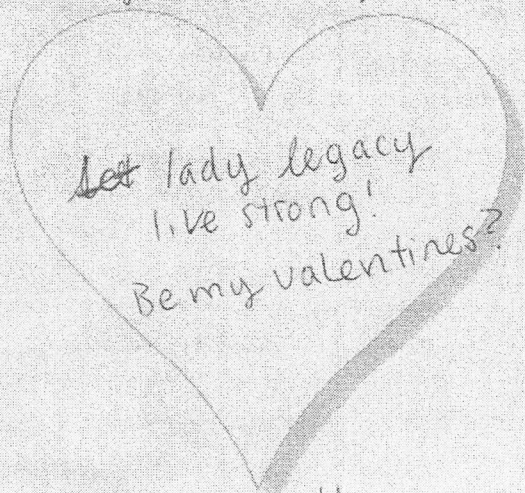 lady legacy
live strong!
Be my valentines?